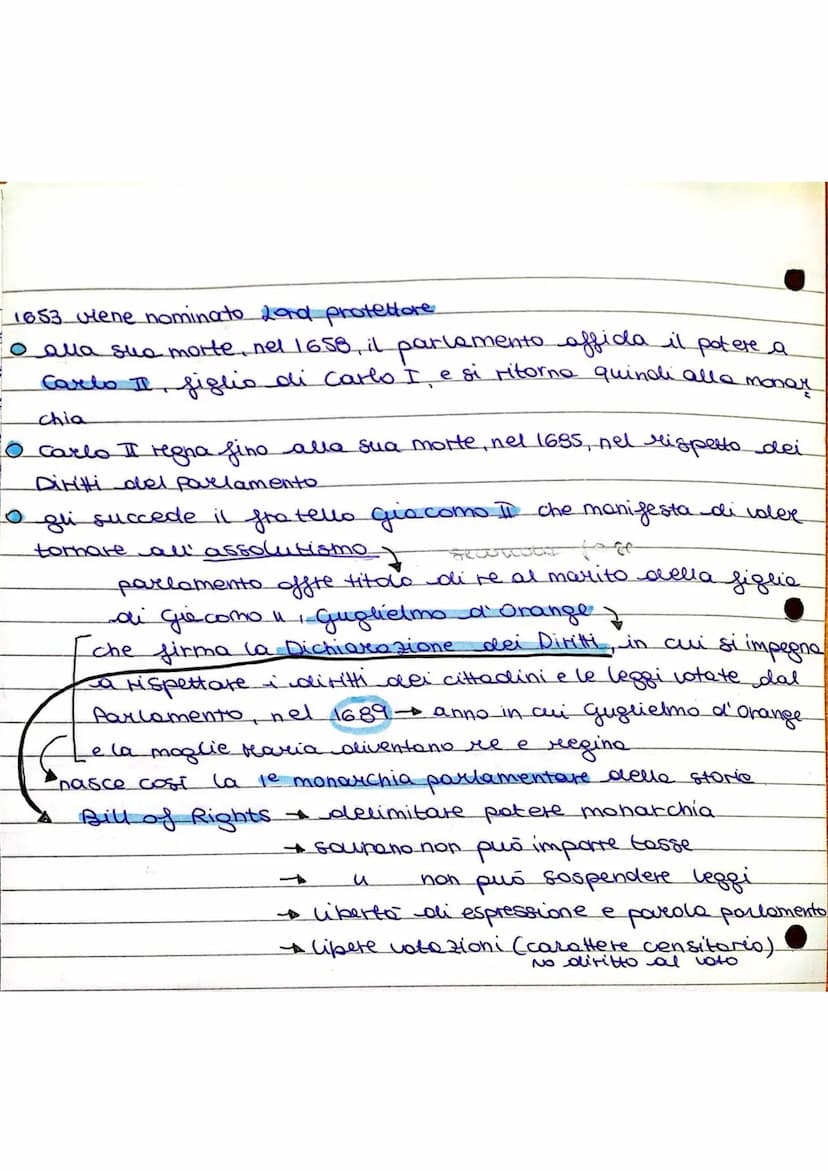 1653 viene nominato Lord protettore
alla sua morte, nel 1658, il parlamento affida il potere a
Carlo II, figlio di Carlo I, e si ritorna quindi alla monar
chia
Carlo II regna fino alla sua morte, nel 1685, nel rispetto dei
Diritti del Parlamento
gli succede il fratello Giacomo II che manifesta di voler
tornare all'assolutismo
parlamento offre titolo di re al marito della figlia
di Giacomo II, Guglielmo d'Orange
che firma la Dichiarazione dei Diritti, in cui si impegna
a rispettare i diritti dei cittadini e le leggi votate dal
Parlamento, nel 1689 → anno in cui Guglielmo d'Orange
e la moglie Maria diventano re e regina
nasce così la 1e monarchia parlamentare della storia
Bill of Rights → delimitare potere monarchia
→ sovrano non può imporre tasse
→ " non può sospendere leggi
→ libertà di espressione e parola parlamento
→ libere votazioni (carattere censitario)
no diritto al voto